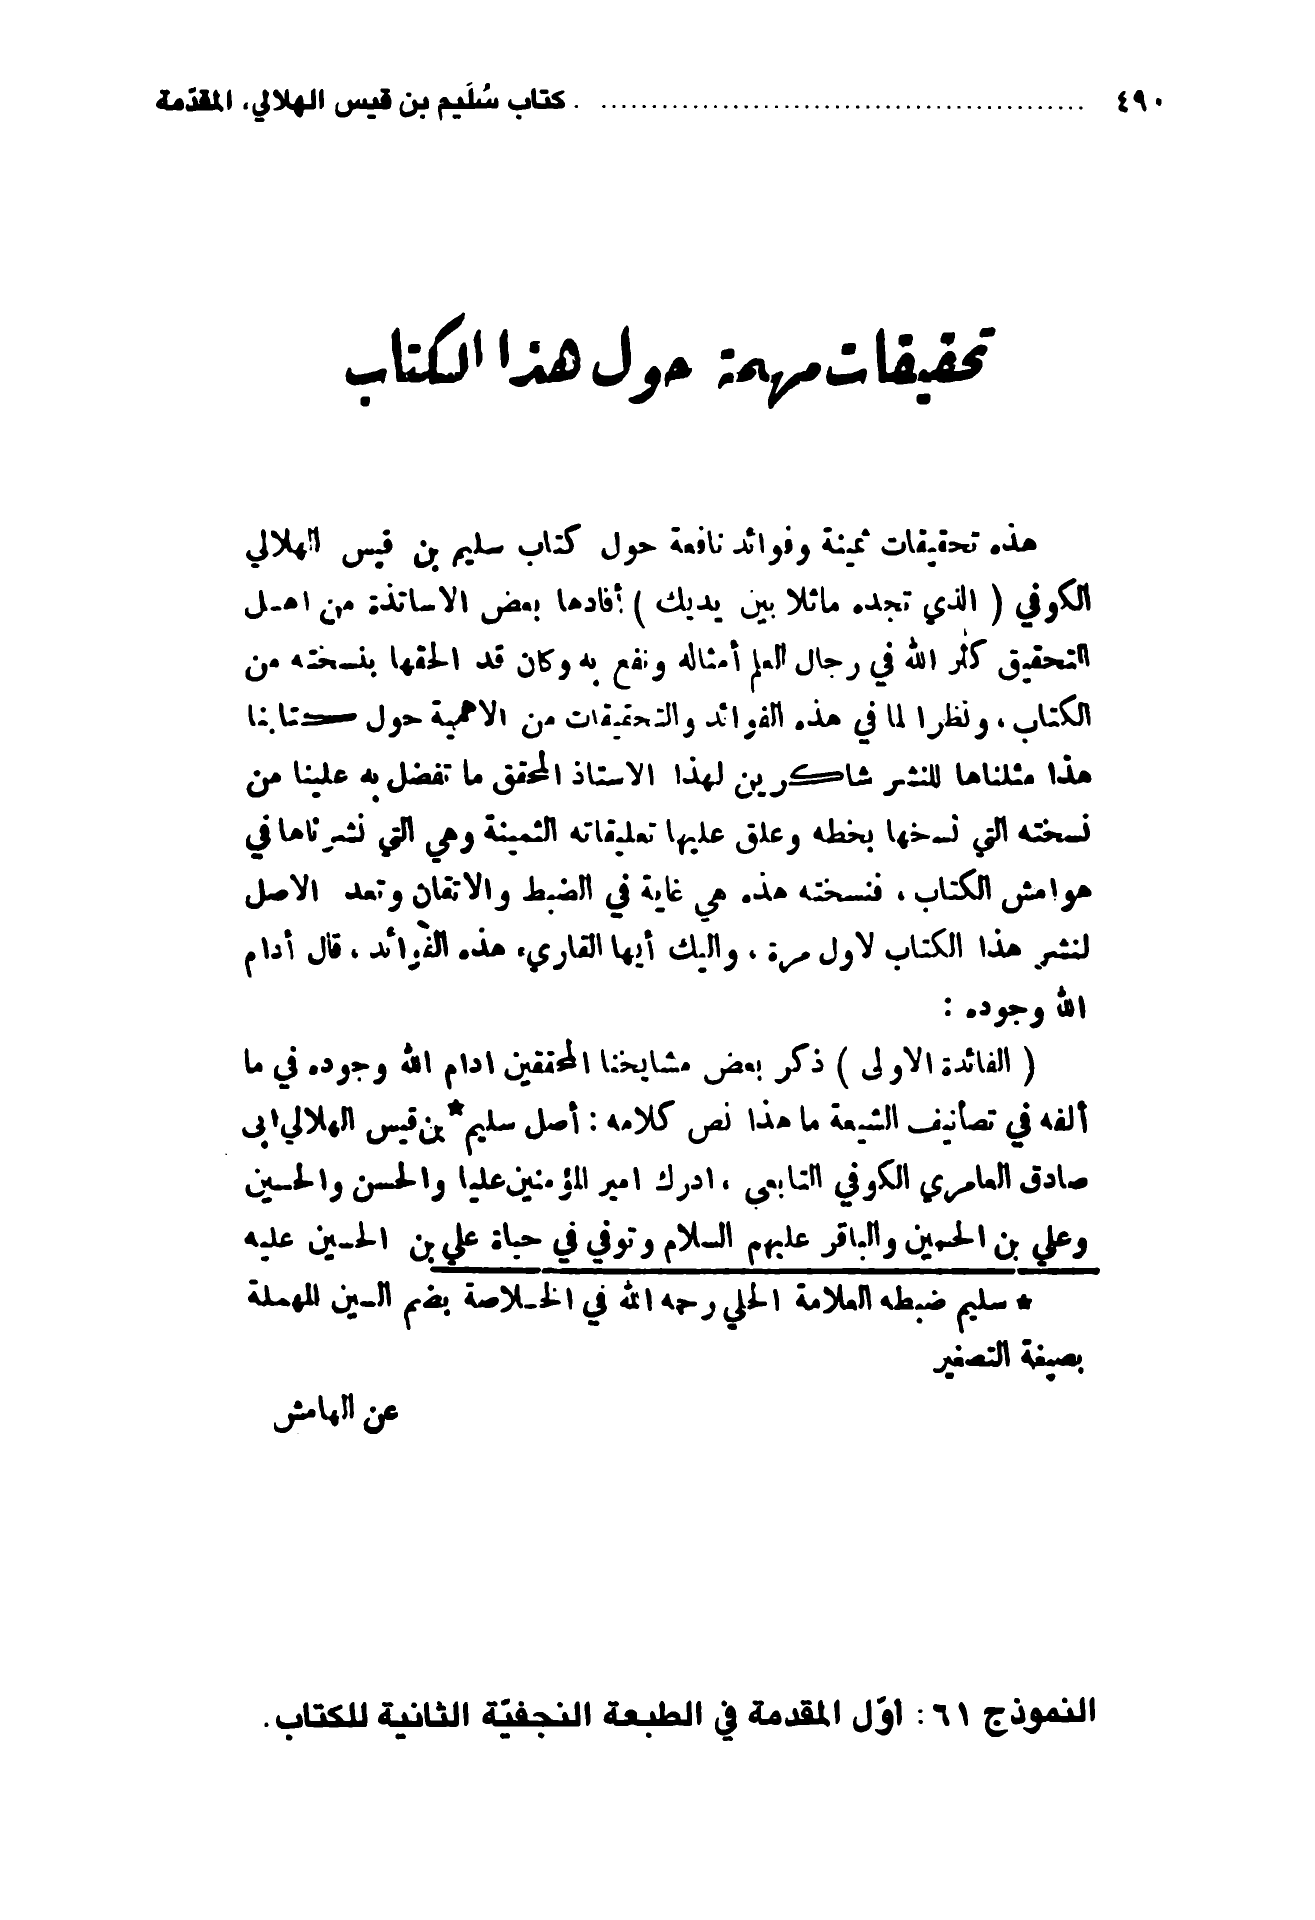 ٤٩٠ ................................................ كتاب سُلَيم بن قيس الهلالي، المقدّمة
تحقيقات مهمة حول هذا الكتاب
هذه تحقيقات ثمينة وفوائد نافعة حول كتاب سليم بن قيس الهلالي
الكوفي ( الذي تجده ماثلا بين يديك ) أفادها بعض الاساتذة من اهل
التحقيق كثر الله في رجال العلم أمثاله ونفع به وكان قد الحقها بنسخته من
الكتاب ، ونظرا لما في هذه الفوائد والتحقيقات من الاهمية حول كتابنا
هذا مثلناها للنشر شاكرين لهذا الاستاذ المحقق ما تفضل به علينا من
نسخته التي نسخها بخطه وعلق عليها تعليقاته الثمينة وهي التي نشرناها في
هوامش الكتاب ، فنسخته هذه هي غاية في الضبط والاتقان وتعد الاصل
لنشر هذا الكتاب لاول مرة ، واليك أيها القاريء هذه الفوائد ، قال أدام
الله وجوده :
( الفائدة الاولى ) ذكر بعض مشايخنا المحققين ادام الله وجوده في ما
ألفه في تصأنيف الشيعة ما هذا نص كلامه : أصل سليم* بن قيس الهلالي ابى
صادق العامري الكوفي التابعي ، ادرك امير المؤمنين عليا والحسن والحسين
وعلي بن الحسين والباقر عليهم السلام وتوفي في حياة علي بن الحسين عليه
* سليم ضبطه العلامة الحلي رحمه الله في الخلاصة بضم السين المهملة
بصيغة التصغير
عن الهامش
النموذج ٦١ : اوّل المقدمة في الطبعة النجفيّة الثانية للكتاب .